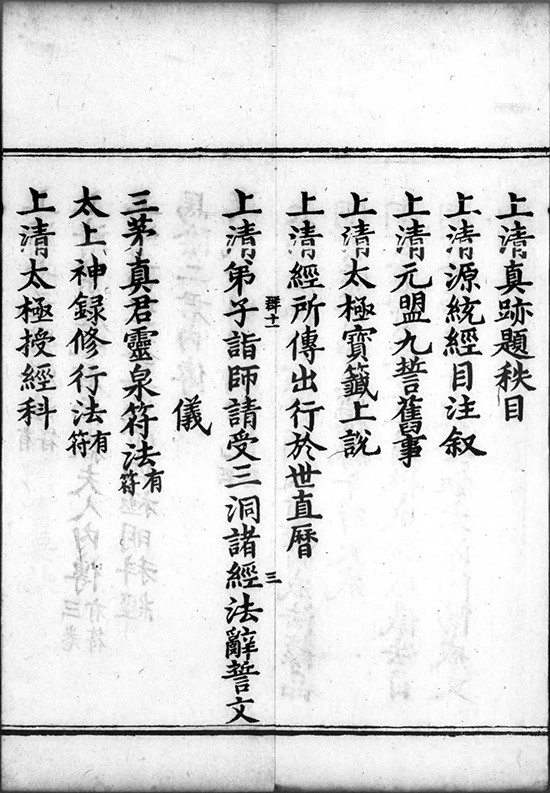 上清真跡題秩目
上清源統經目注叙
上清元盟九誓舊事
上清太極寶籤上說
上清經所傳出行於世直曆
群十
三
上清弟子詣師請受三洞諸經法辭誓文
儀
三茅真君靈泉符法有符
太上神録修行法有符
上清太極授經科